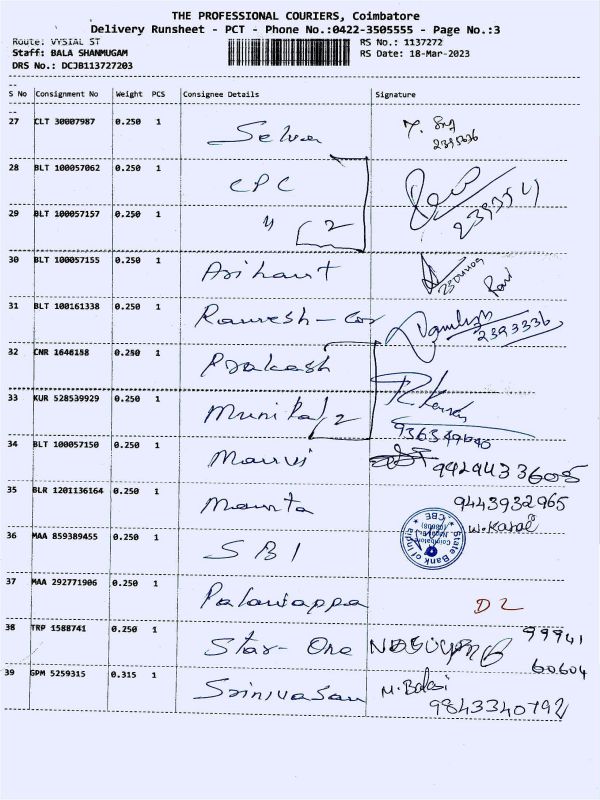 THE PROFESSIONAL COURIERS, Coimbatore
Delivery Runsheet - PCT - Phone No.:0422-3505555 - Page No.:3
Route: VYSIAL ST RS No.: 1137272
Staff: BALA SHANMUGAM RS Date: 18-Mar-2023
DRS No.: DCJB113727203
S No Consignment No Weight PCS Consignee Details Signature
27 CLT 30007987 0.250 1 Selva
2395036
28 BLT 100057062 0.250 1 CPC
29 BLT 100057157 0.250 1 " 2
30 BLT 100057155 0.250 1 Arihant
31 BLT 100161338 0.250 1 Ramesh - Cor
2393336
32 CNR 1646158 0.250 1 Prakash
33 KUR 528539929 0.250 1 2
34 BLT 100057150 0.250 1
35 BLR 1201136164 0.250 1 Mamta 9443932965
36 MAA 859389455 0.250 1 SBI
State Bank of India
CBE
37 MAA 292771906 0.250 1 Palaniappa D2
38 TRP 1588741 0.250 1 Star- One 99941
60604
39 GPM 5259315 0.315 1 Srinivasan M. Balaji
9843340792